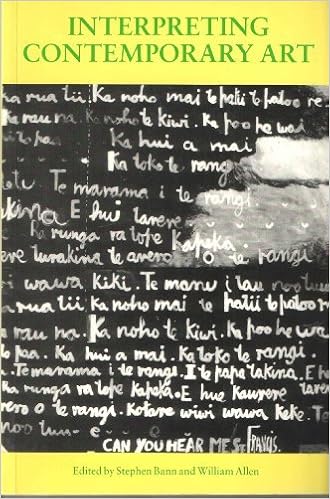 INTERPRETING
CONTEMPORARY ART
a rua tii. Ka noho mai te patii te patoo re
ka rau na. Ka noho te kiwi. Ka poo he wai
ti to paa. Ka hui a mai
Ka toko te rang
Te marama i te rangi
akina E hui tarere
ka runga ra tope kapeka.
ere turakina te arero o te rangi
i wawa kiki. Te manu i tau
a rua tii. Ka noho mai te patii te patoo ro
a rau na. Ka noho te kiwi. Ka poo he wa
to paa. Ka hui a mai. Ka toko te rangi.
. Te marama i te rangi. II te pape takina. E h
ka runga ra tope kapeka. E hue kaurere tare
rero o te rangi. Kotare wiwi wawa keke. Te
CAN YOU HEAR ME ST FRANCIS.
Edited by Stephen Bann and William Allen